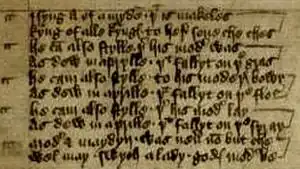 I syng A of a myde þt is makeles
kyng of alle kyngs to her sone che ches
he cā also stylle þr his modr was
as dew in aprylle þt fallyt on þe gras
he cam also stylle to his modrs bowr
as dew in aprille þt fallyt on þe flor
he cam also stylle þr his modr lay
as dew in aprille þt fallyt on þe spray
modr & maydyn was nevr nō but che
wel may swych a lady gods modr be